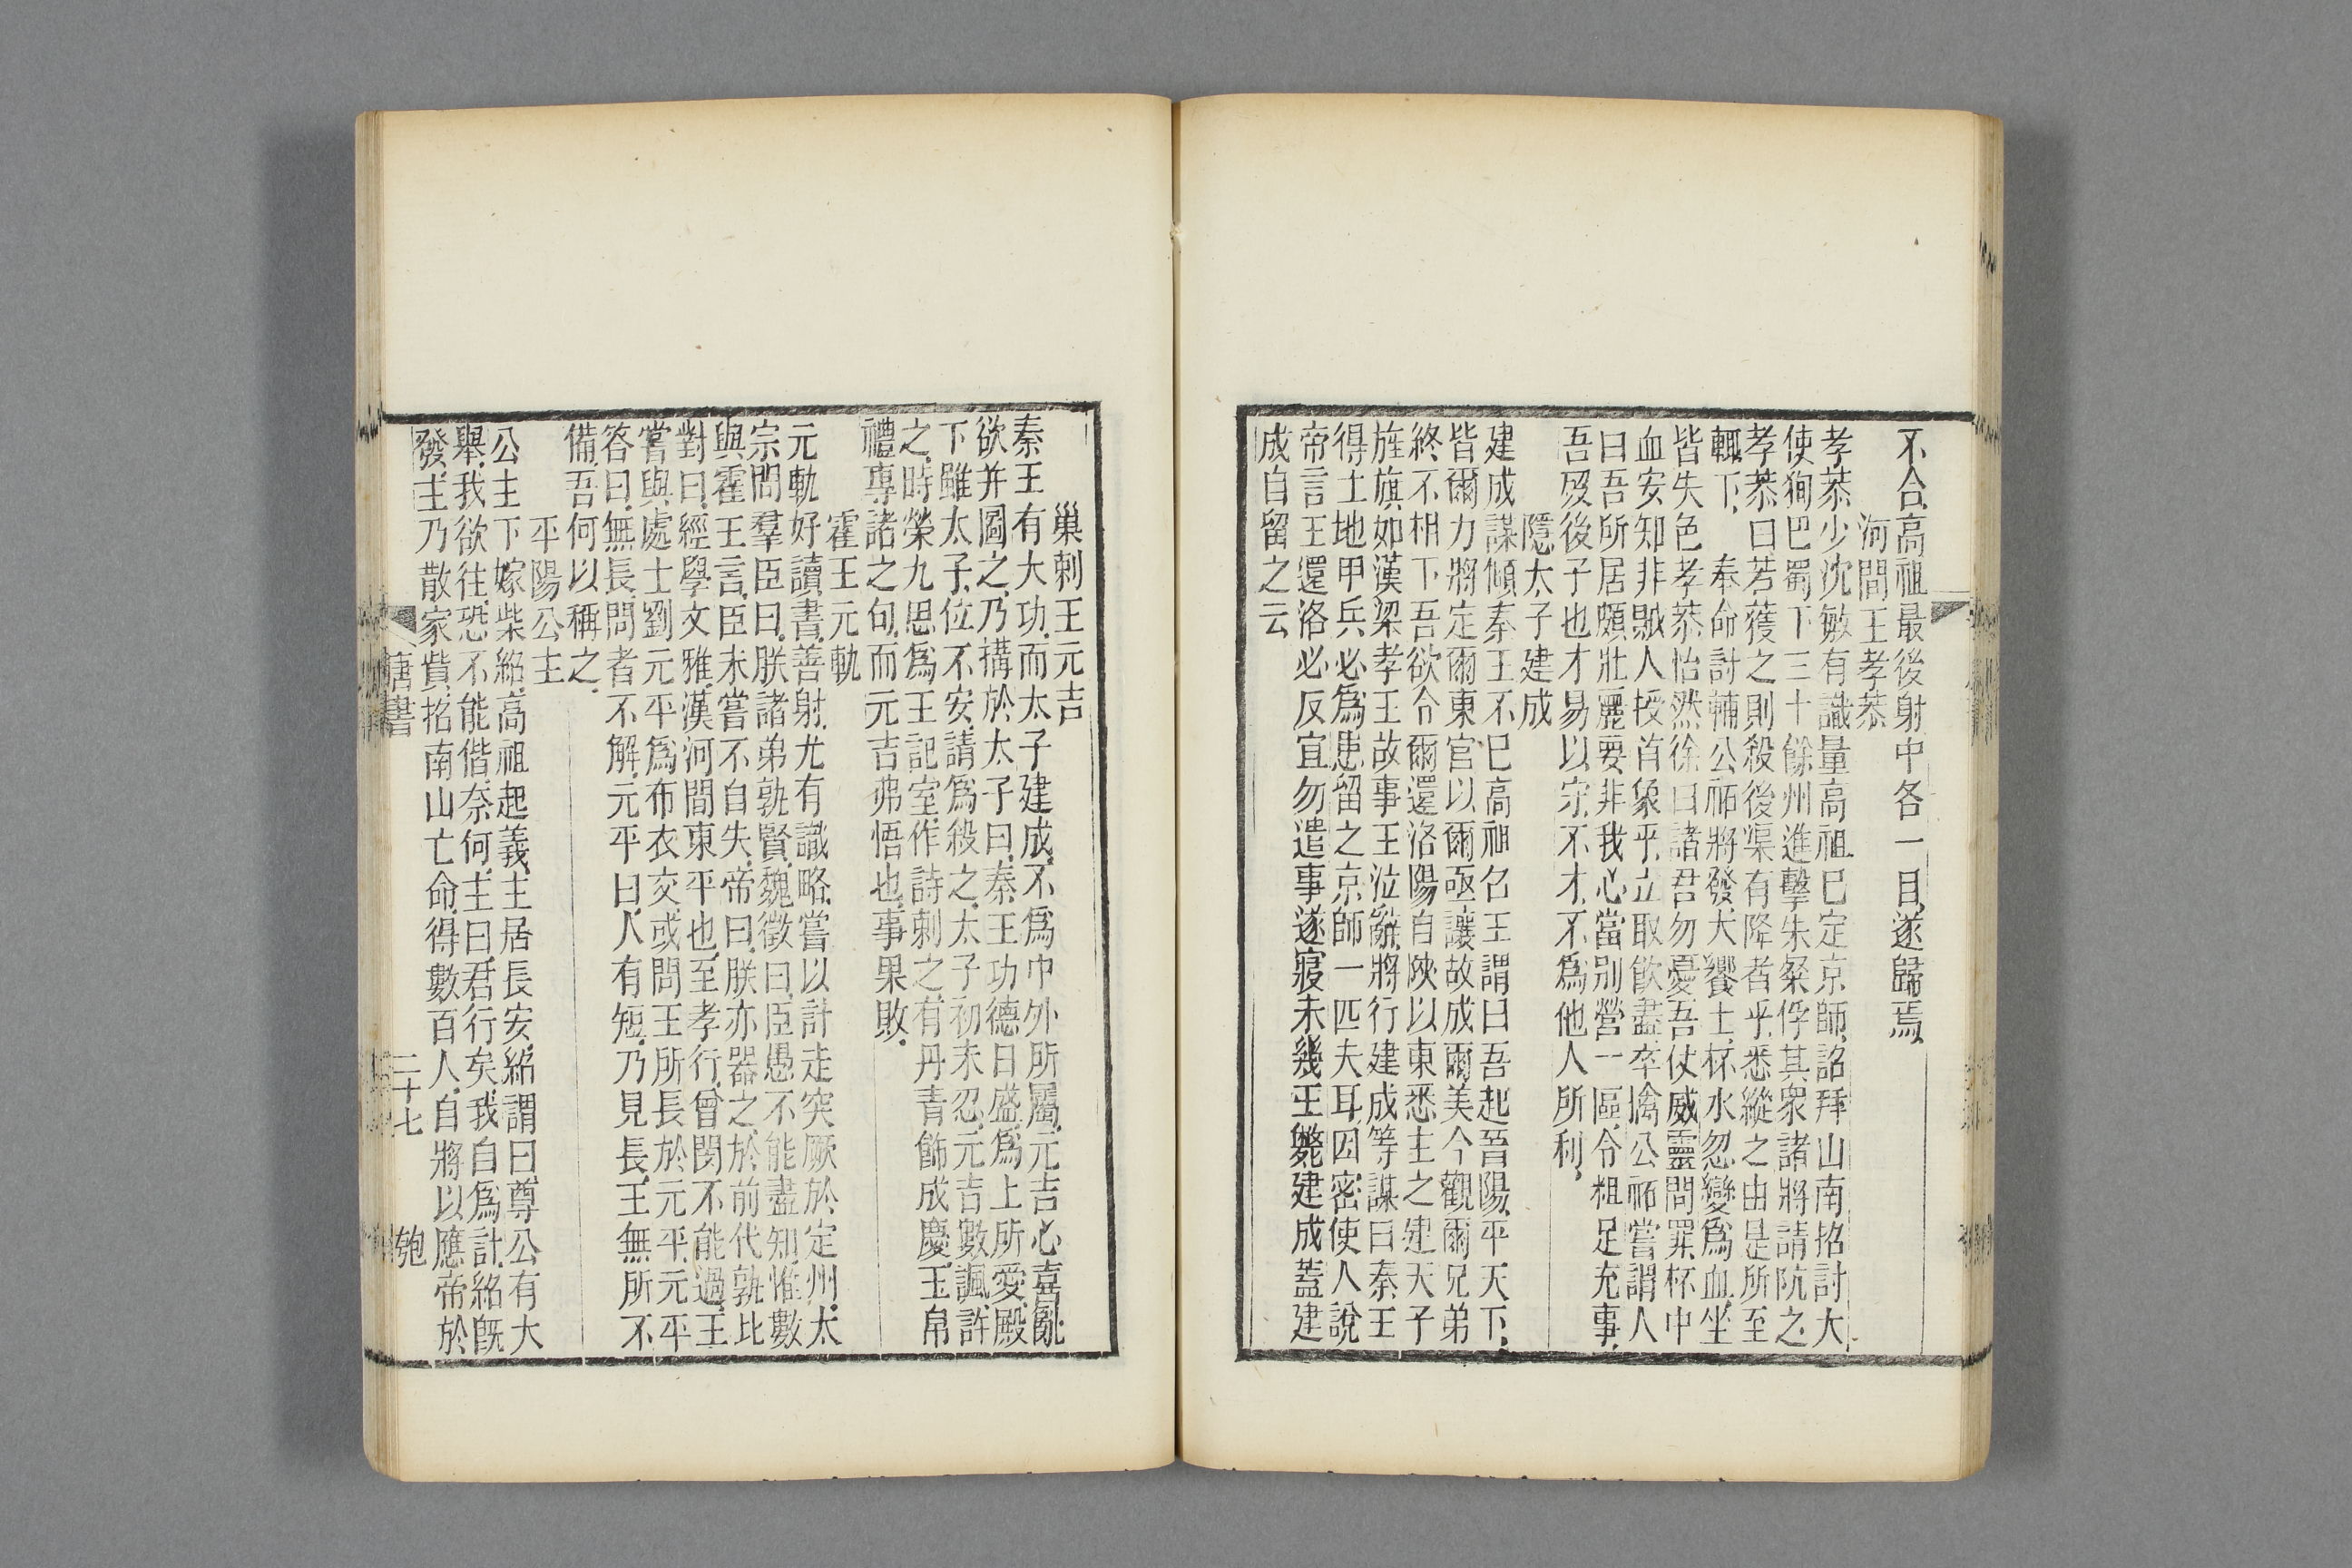 不合高祖最後射中各一目遂歸焉
河間王孝恭
孝恭少沈敏有識量高祖已定京師詔拜山南招討大
使徇巴蜀下三十餘州進擊朱粲俘其衆諸將請阬之
孝恭曰若獲之則殺後渠有降者乎悉縱之由是所至
輒下 奉命討輔公祏將發大饗士杯水忽變爲血坐
皆失色孝恭怡然徐曰諸君勿憂吾仗威靈問罪杯中
血安知非賊人授首象乎立取飲盡卒擒公祏嘗謂人
曰吾所居頗壯麗要非我心當別營一區令粗足充事
吾歿後子也才易以守不才不爲他人所利
隱太子建成
建成謀傾秦王不已高祖召王謂曰吾起晉陽平天下
皆爾力將定爾東宮以爾亟讓故成爾美今觀爾兄弟
終不相下吾欲令爾還洛陽自陝以東悉主之建天子
旌旗如漢梁孝王故事王泣辭將行建成等謀曰秦王
得土地甲兵必爲患留之京師一匹夫耳因密使人說
帝言王還洛必反宜勿遣事遂寢未幾王斃建成蓋建
成自留之云
巢刺王元吉
秦王有大功而太子建成不爲中外所屬元吉心喜亂
欲并圖之乃搆於太子曰秦王功德日盛爲上所愛殿
下雖太子位不安請爲殺之太子初未忍元吉數諷許
之時榮九思爲王記室作詩刺之有丹青飾成慶玉帛
禮專諸之句而元吉弗悟也事果敗
霍王元軌
元軌好讀書善射尤有識略嘗以計走突厥於定州太
宗問羣臣曰朕諸弟孰賢魏徵曰臣愚不能盡知惟數
與霍王言臣未嘗不自失帝曰朕亦器之於前代孰比
對曰經學文雅漢河間東平也至孝行曾閔不能過王
嘗與處士劉元平爲布衣交或問王所長於元平元平
答曰無長問者不解元平曰人有短乃見長王無所不
備吾何以稱之
平陽公主
公主下嫁柴紹高祖起義主居長安紹謂曰尊公有大
舉我欲往恐不能偕奈何主曰君行矣我自爲計紹旣
發主乃散家貲招南山亡命得數百人自將以應帝於
唐書 二十七 匏